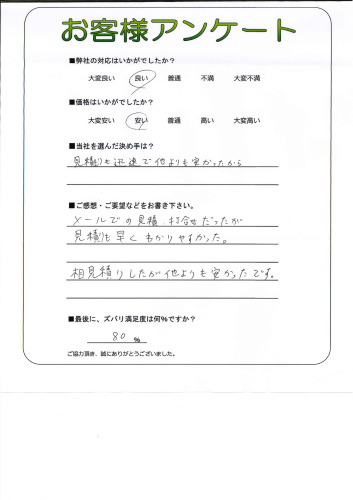 お客様アンケート
■弊社の対応はいかがでしたか？
大変良い 良い 普通 不満 大変不満
■価格はいかがでしたか？
大変安い 安い 普通 高い 大変高い
■当社を選んだ決め手は？
見積りも迅速で他よりも安かったから
■ご感想・ご要望などをお書き下さい。
メールでの見積、打合せだったが
見積りも早くわかりやすかった。
相見積りしたが他よりも安かったです。
■最後に、ズバリ満足度は何％ですか？
80 %
ご協力頂き、誠にありがとうございました。